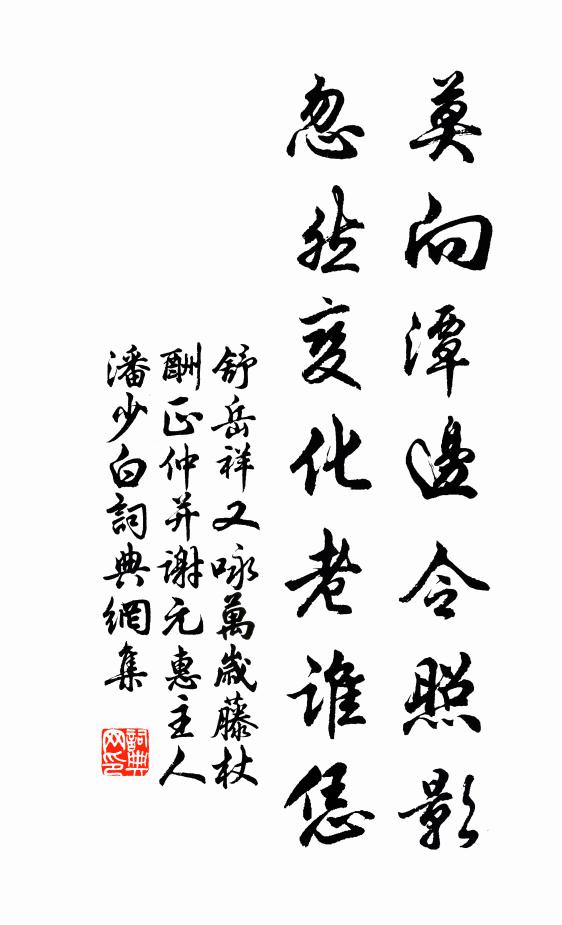 莫向潭邊令照影
忽然變化老誰恁
舒岳祥又咏萬歲藤杖
酬正仲并謝元惠主人
潘少白詞典網集
詞典网印